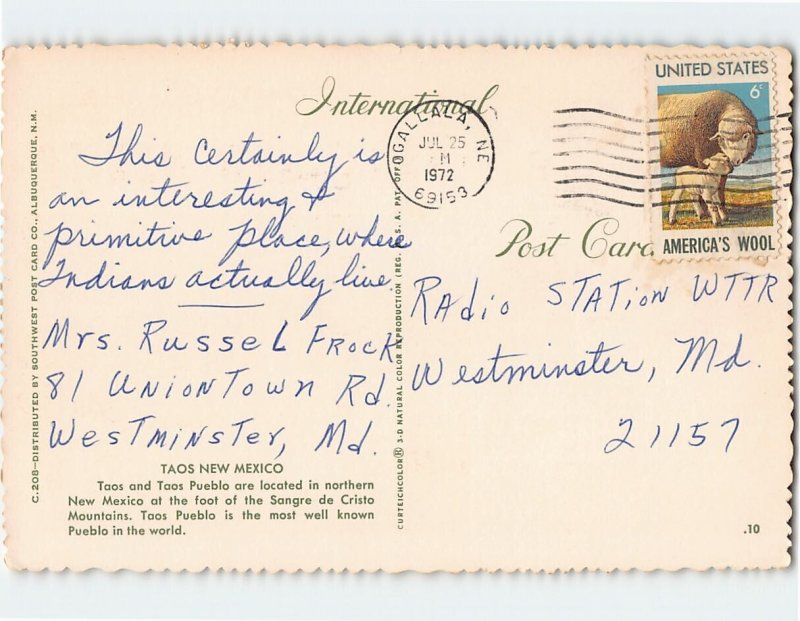 International
This certainly is
an interesting &
primitive place, where
Indians actually live.
Mrs. Russel Frock
81 Uniontown Rd.
Westminster, Md.
TAOS NEW MEXICO
Taos and Taos Pueblo are located in northern
New Mexico at the foot of the Sangre de Cristo
Mountains. Taos Pueblo is the most well known
Pueblo in the world.
C.208—DISTRIBUTED BY SOUTHWEST POST CARD CO., ALBUQUERQUE, N.M.
CURTEICHCOLOR® 3-D NATURAL COLOR REPRODUCTION (REG. U.S.A. PAT. OFF.)
OGALLALA, NE
JUL 25
M
1972
69153
UNITED STATES
6c
AMERICA'S WOOL
Post Card
Radio Station WTTR
Westminster, Md.
21157
.10